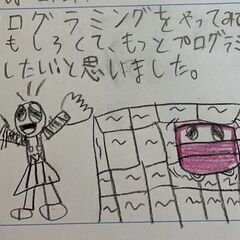 ログラミングをやってみ
もしろくて、もっとプログラミ
したいと思いました。